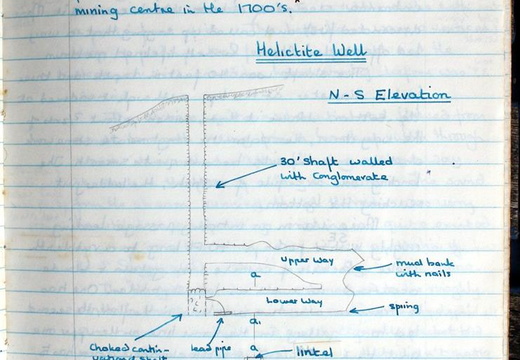 mining centre in the 1700's.
Helictite Well
N-S Elevation
30' shaft walled
with Conglomerate
Upper Way
mud bank
with nails
a
Lower Way
spring
a,
Choked contin-
uation of shaft
lead pipe
a
lintel